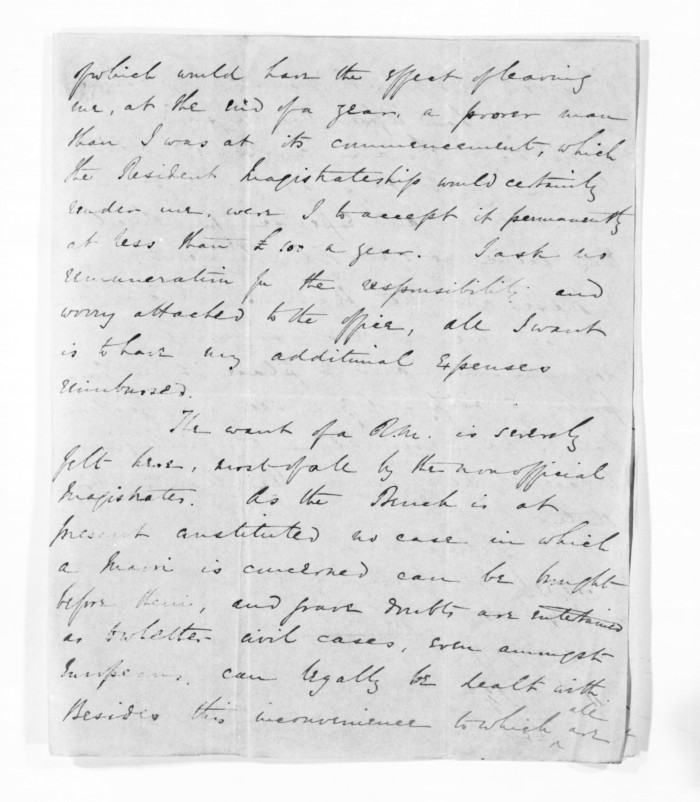 of which would have the effect of leaving
me, at the end of a year, a poorer man
than I was at its commencement, which
the Resident Magistrateship would certainly
render me, were I to accept it permanently
at less than £ a year. I ask no
remuneration for the responsibility and
worry attached to the office, all I want
is to have my additional expenses
reimbursed.
The want of a R.M. is severely
felt here, most of all by the non official
Magistrates. As the Bench is at
present constituted no case in which
a Maori is concerned can be brought
before them, and grave doubts are entertained
as to whether civil cases, even amongst
Europeans, can legally be dealt with
Besides this inconvenience to which all are